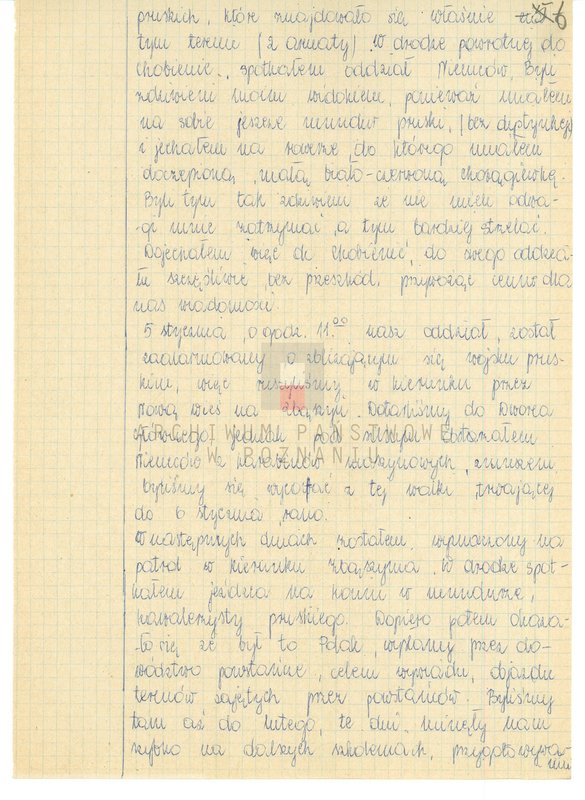 6
pruskich, które znajdowało się właśnie
tym terenie (2 armaty). W drodze powrotnej do
Chobienic, spotkałem oddział Niemców, Byli
zdziwieni moim widokiem, ponieważ miałem
na sobie jeszcze mundur pruski, (bez dystynkcji)
i jechałem na rowerze, do którego miałem
doczepioną małą biało-czerwoną chorągiewkę.
Byli tym tak zdziwieni że nie mieli odwa-
gi mnie zatrzymać, a tym bardziej strzelać.
Dojechałem więc do Chobienic, do swego oddzia-
łu szczęśliwie, bez przeszkód, przywożąc cenne dla
nas wiadomości.
5 stycznia, o godz. 11.00 nasz oddział, został
zaalarmowany o zbliżającym się wojsku prus-
kim, więc ruszyliśmy w kierunku przez
Nową Wieś na Zbąszyń. Dotarliśmy do Dworca
jednak pod silnym obstrzałem
Niemców z karabinów maszynowych, zmuszeni
byliśmy się wycofać z tej walki trwającej
do 6 stycznia rano.
W następnych dniach zostałem, wyznaczony na
patrol w kierunku Zbąszynia. W drodze spot-
kałem jeźdźca na koniu w mundurze,
kawalerzysty pruskiego. Dopiero potem okaza-
ło się że był to Polak, wysłany przez do-
wództwo powstańcze, celem wywiadu, objazdu
terenów zajętych przez powstańców. Byliśmy
tam aż do lutego, te dni, minęły nam
szybko na dalszych szkoleniach, przygotowywa-
niu
ARCHIWUM PAŃSTWOWE
W POZNANIU